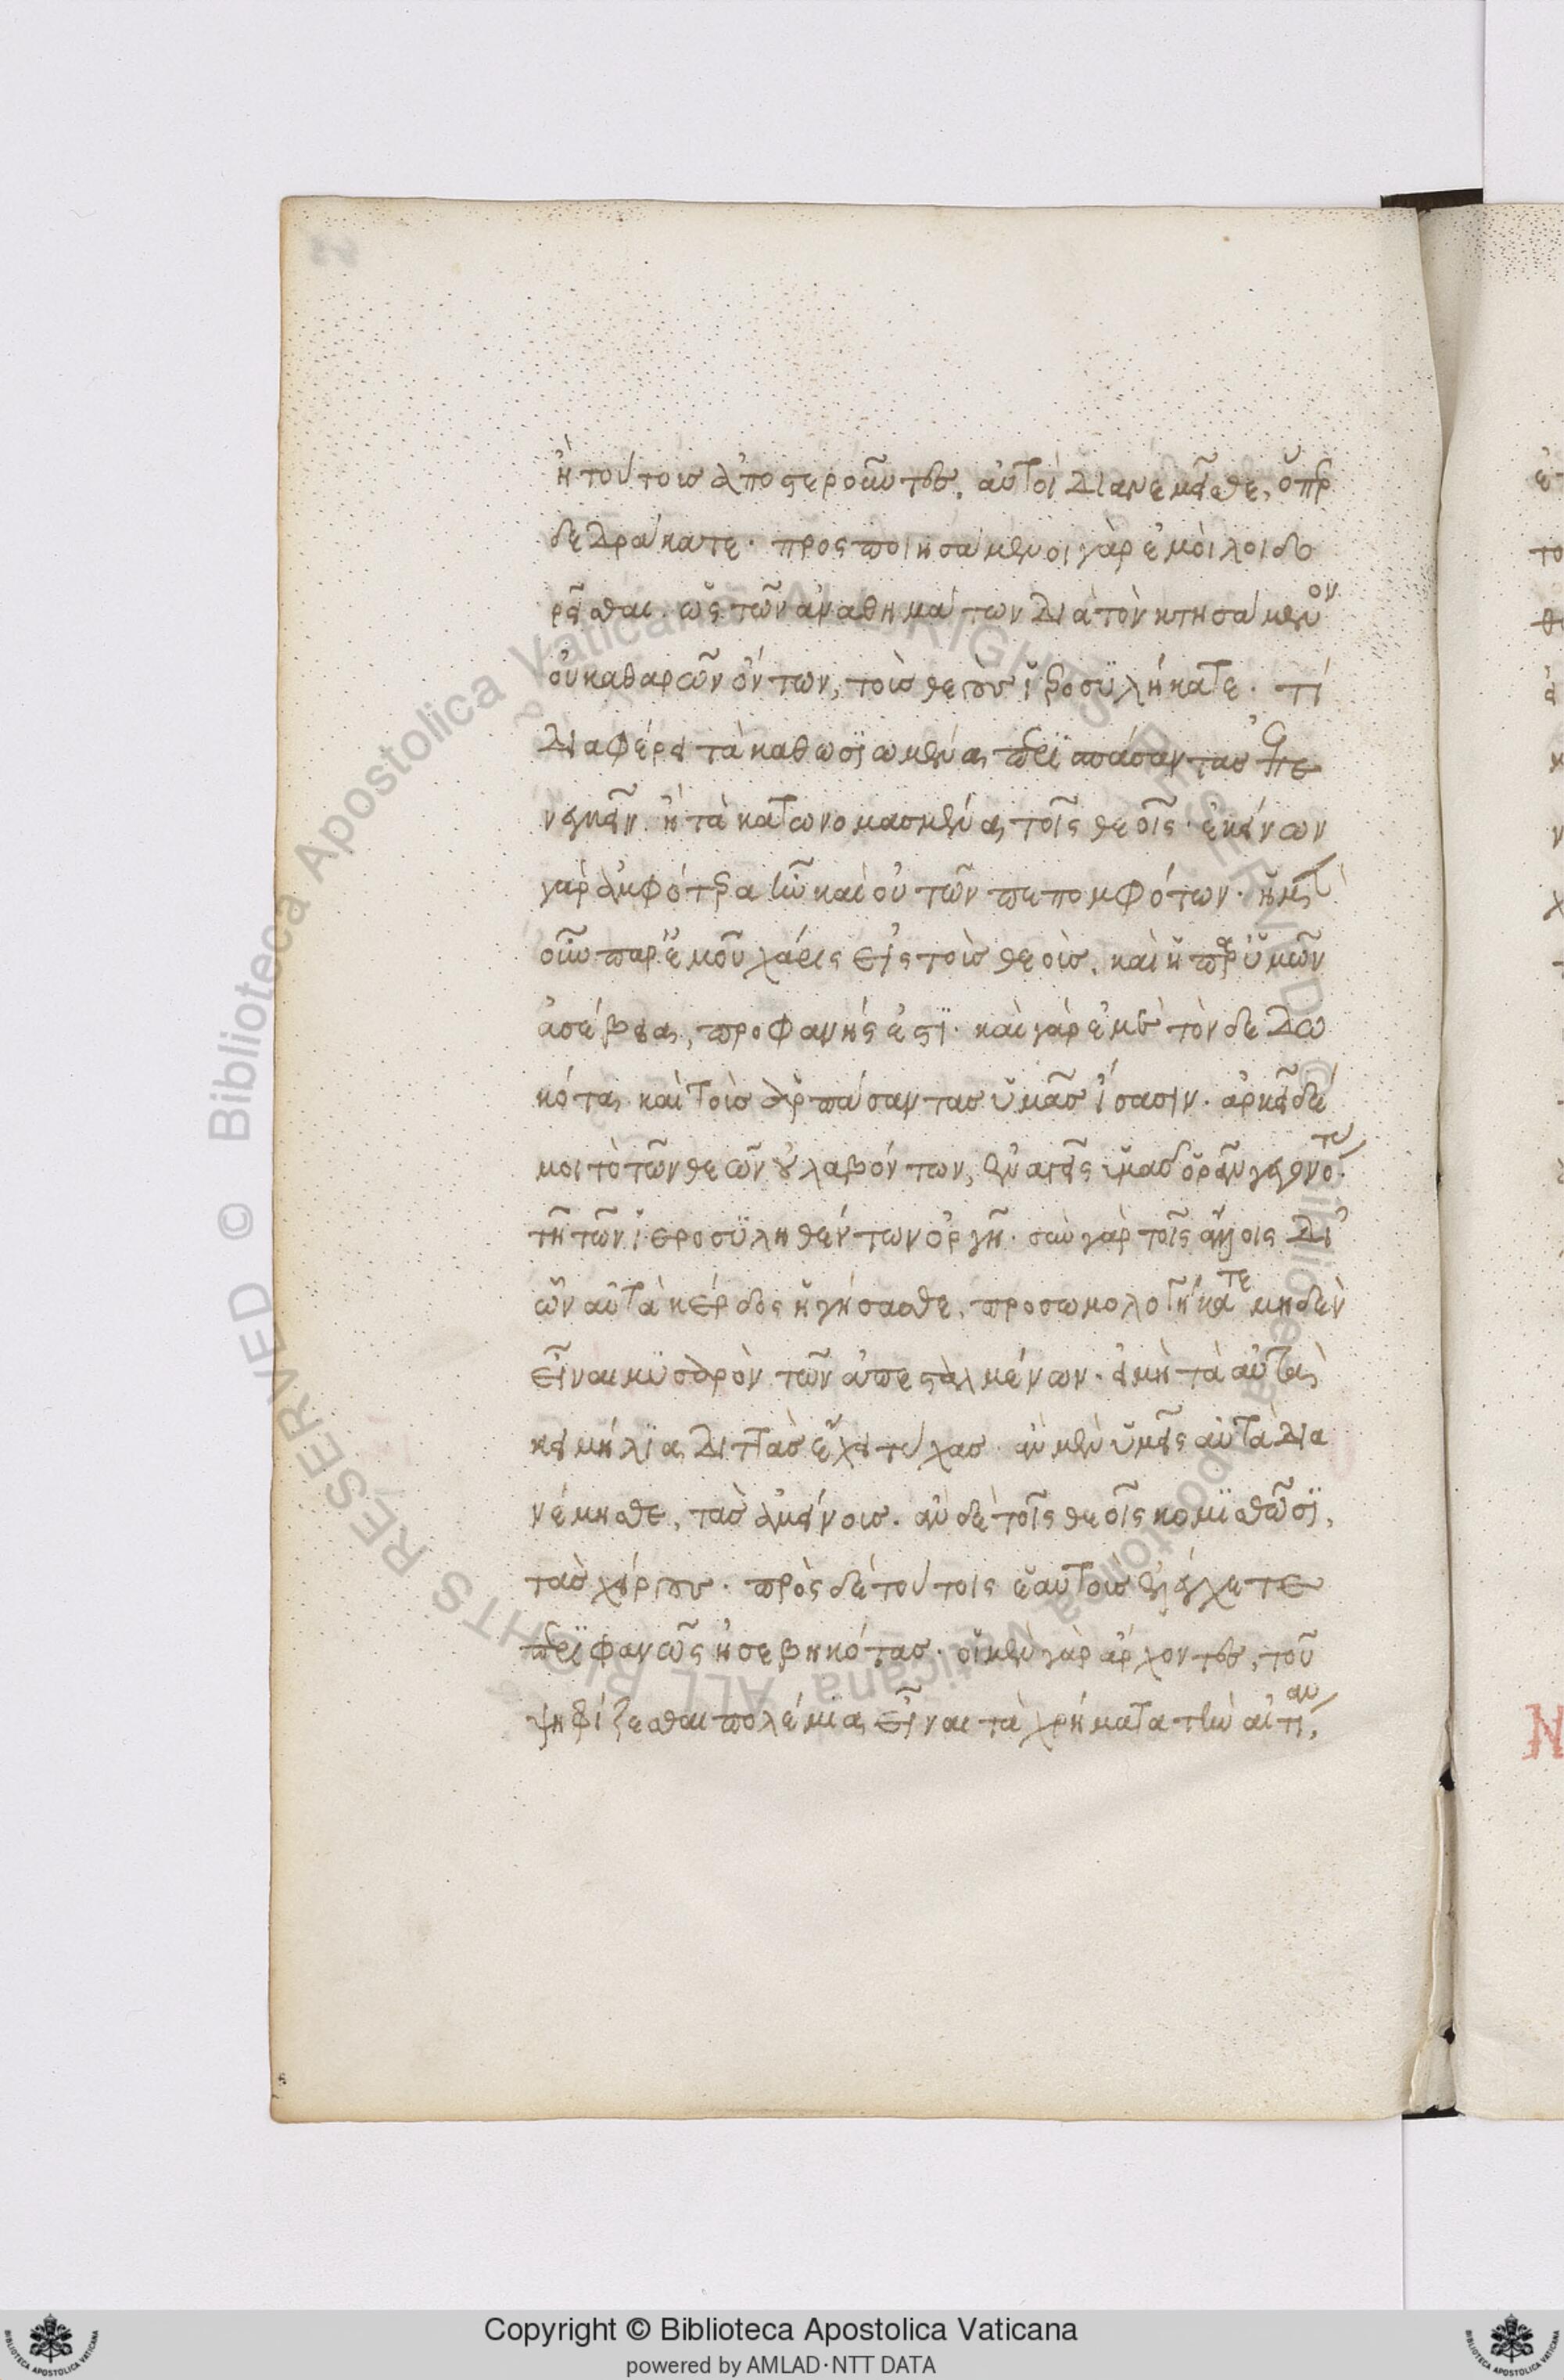 ἢ τούτους ἀποστεροῦντες, αὐτοὶ διανέμεσθε, ὅπερ
δεδράκατε· προσποιησάμενοι γὰρ ἐμοὶ λοιδο
ρεῖσθαι. ὡς τῶν ἀναθημάτων διὰ τὸν κτησάμενον
οὐ καθαρῶν ὄντων, τοὺς θεοὺς ἱεροσυλήκατε. τί
διαφέρει τὰ καθωσιωμένα περισπάσαντας
ἐνεγκεῖν. ἢ τὰ κατωνομασμένα τοῖς θεοῖς· ἐκείνων
γὰρ ἀμφότερα ἦν καὶ οὐ τῶν πεπομφότων. ἡ μὲν
οὖν παρ' ἐμοῦ χάρις εἰς τοὺς θεοὺς, καὶ ἡ παρ' ὑμῶν
ἀσέβεια, προφανής ἐστι· καὶ γὰρ ἐμὲ τὸν δεδω
κότα καὶ τοὺς ἁρπάσαντας ὑμᾶς ἴσασιν. ἀρκεῖ δέ
μοι τὸ τῶν θεῶν εὐλαβόντων, ἐναγεῖς ὑμᾶς ὁρᾶν γεγονότας
τῇ τῶν ἱεροσυληθέντων ὀργῇ. σὺν γὰρ τοῖς ἄλλοις δι'
ὧν αὐτὰ κέρδος ἡγήσασθε, προσωμολογήκατε μηδὲν
εἶναι μυσαρὸν τῶν ἀπεσταλμένων. εἰ μὴ τὰ αὐτὰ
κειμήλια διττὰς ἔχει τύχας· ἂν μὲν ὑμεῖς αὐτὰ δια
νέμησθε, τὰς ἀμείνους. ἂν δὲ τοῖς θεοῖς κομισθῶσι,
τὰς χείρους. πρὸς δὲ τούτοις ἑαυτοὺς ἐλέγχετε
περιφανῶς ἠσεβηκότας. οἱ μὲν γὰρ ἄρχοντες, τοῦ
ψηφίζεσθαι πολέμια εἶναι τὰ χρήματα τὴν αἰτίαν,
Copyright © Biblioteca Apostolica Vaticana
powered by AMLAD·NTT DATA